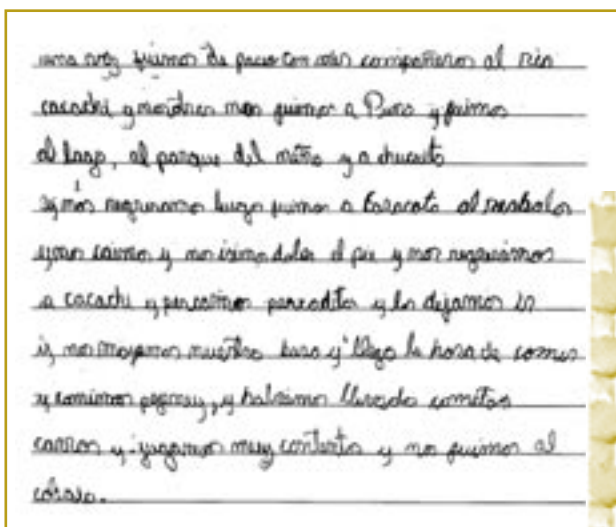 una vez fuimos de paceo con mis compañeros al rio
cacachi y nosotros nos fuimos a Puno y fuimos
al lago, al parque del niño y a chucuito
y nos regresamos luego fuimos a Caracoto al resbalos
y nos caimos y no isimo doler el pie y nos regresamos
a cacachi y pescamos pescaditos y los dejamos
ir, nos mojamos nuestro y llego la hora de comer
y comimos y habiamos llevado cometas
carros y jugamos muy contento y no fuimos al